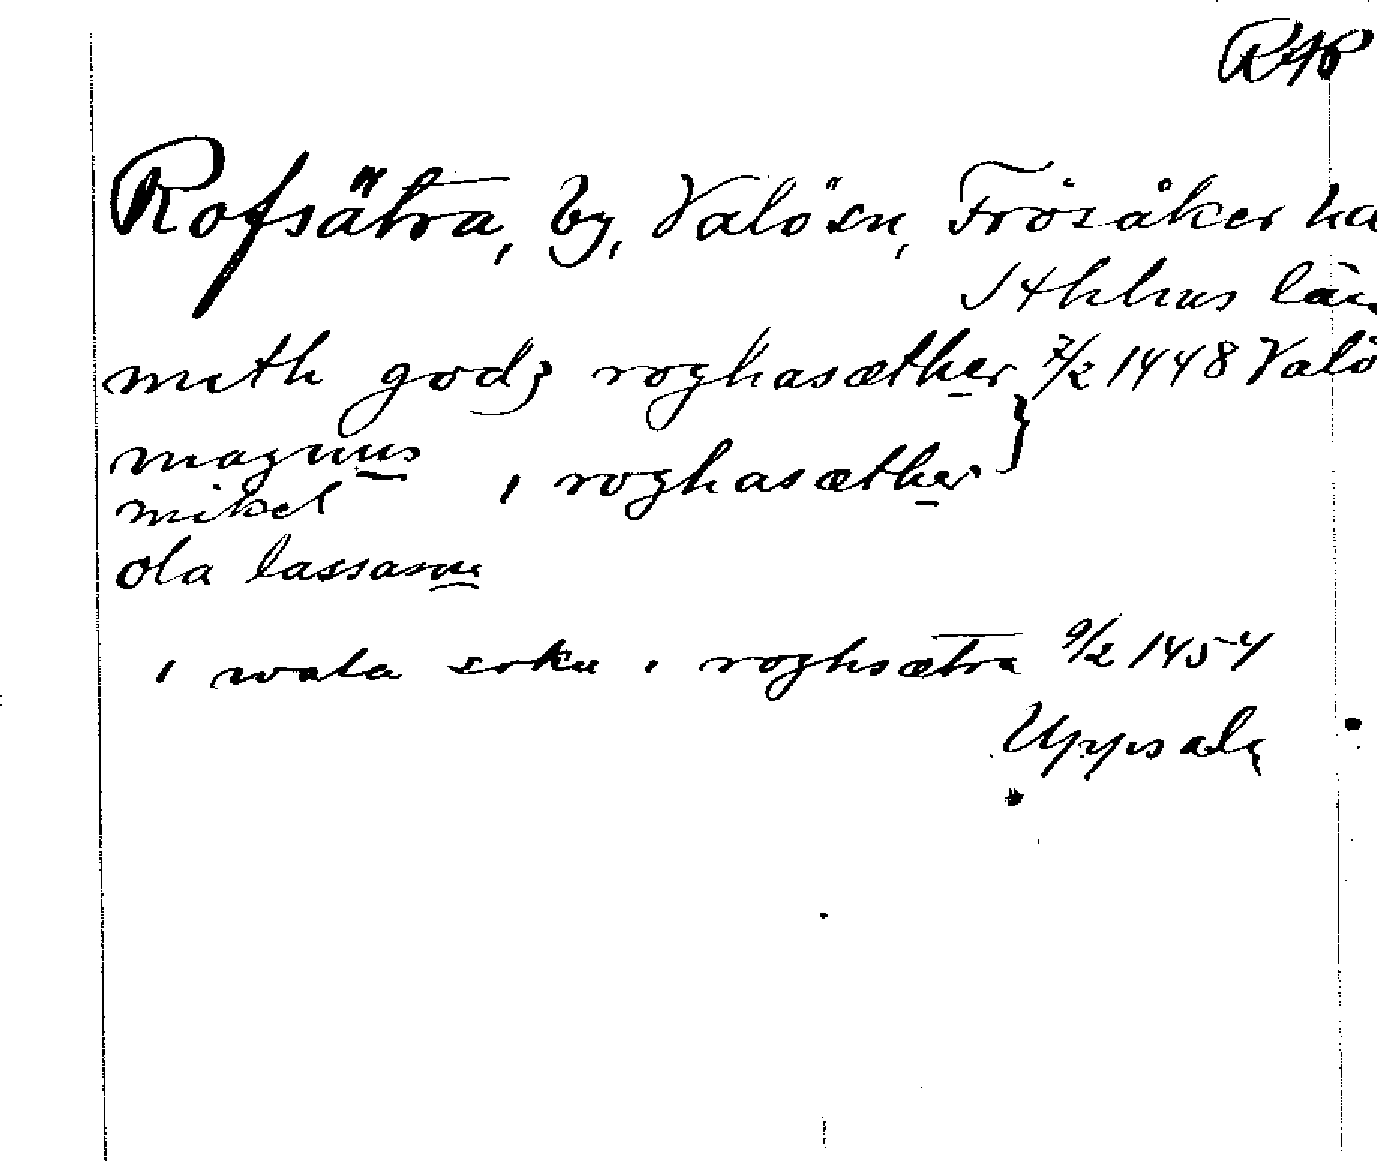 RAP
Rofsätra, by, Valö sn, Frösåker hd
Sthlms län
meth godz roghasæther 7/2 1448 Valö
magnus
mikel i roghasæther }
ola lassasone
i wala sokn i roghsætra 9/2 1454
Uppsala